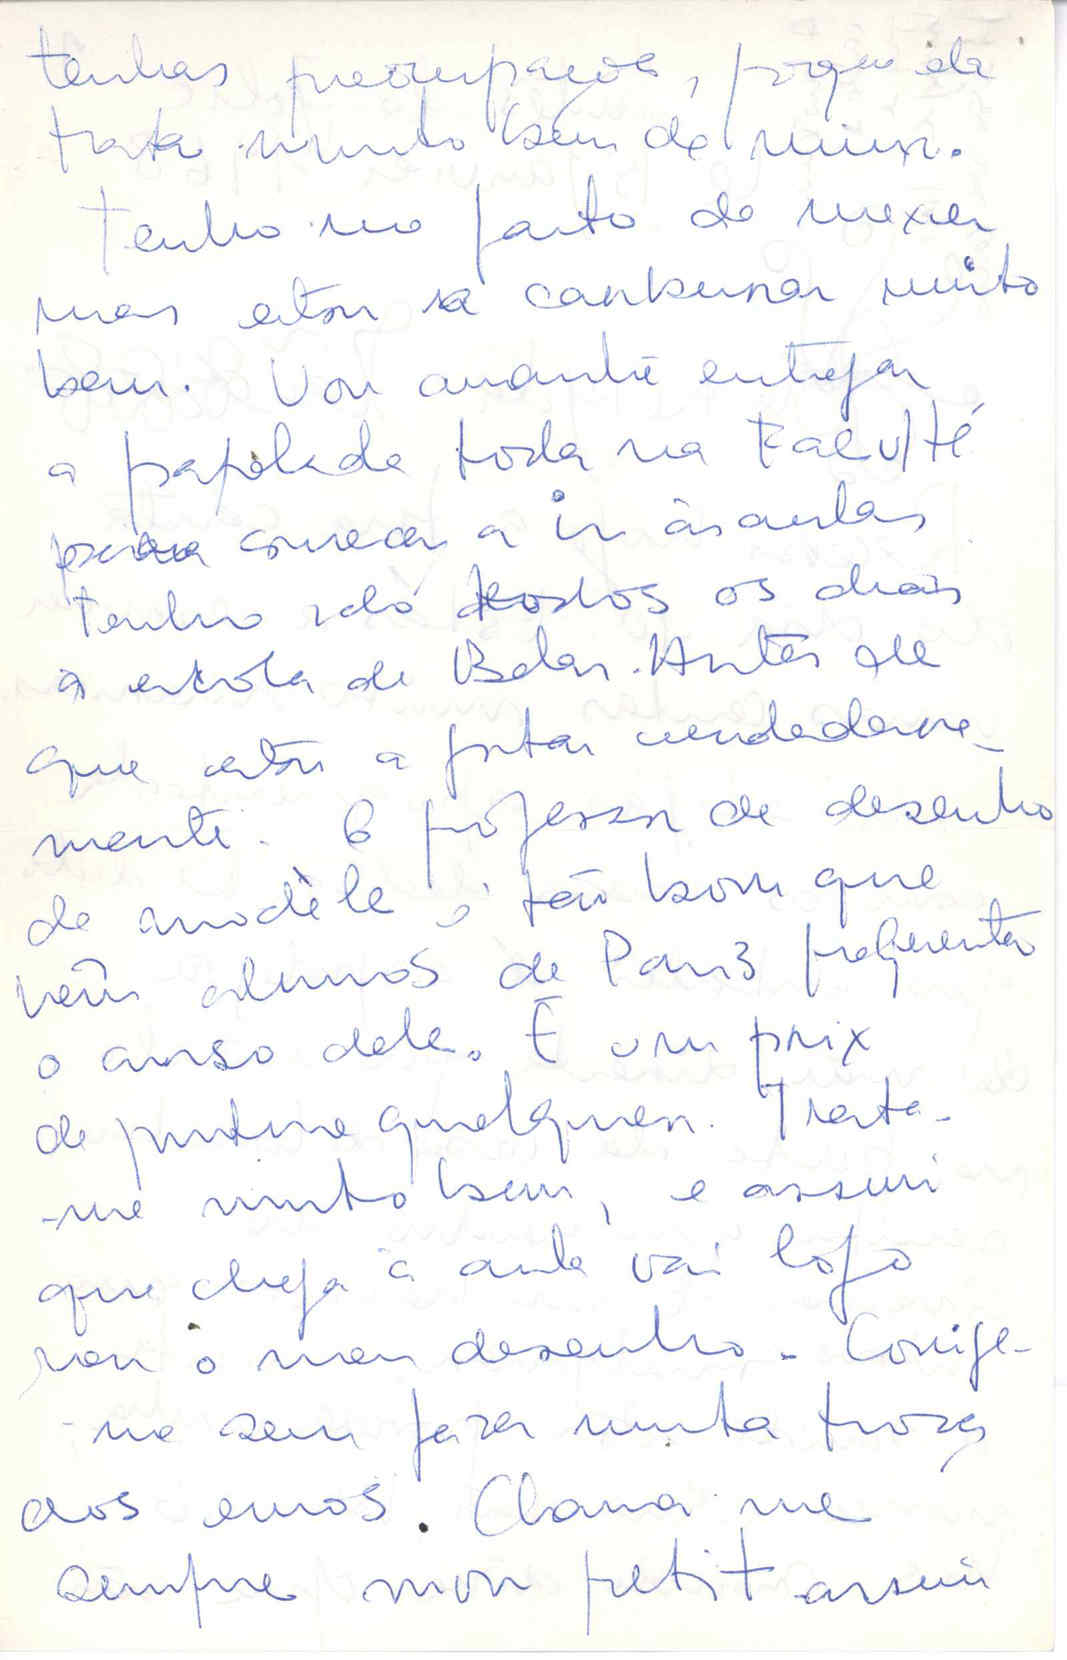 tenhas preocupações, porque ela
trata muito bem de mim.
Tenho me farto de mexer
mas estou a carburar muito
bem. Vou amanhã entregar
a papelada toda na Faculté
para começar a ir às aulas
tenho ido todos os dias
à escola de Belas. Artes de
que estou a gostar verdadeira-
mente. O professor de desenho
de modèle é tão bom que
vêm alunos de Paris frequentar
o curso dele. É um prix
de peinture qualquer. Trata-
-me muito bem, e assim
que chega à aula vai logo
ver o meu desenho. Corrige-
-me sem fazer muita troça
aos erros. Chama me
sempre mon petit assim